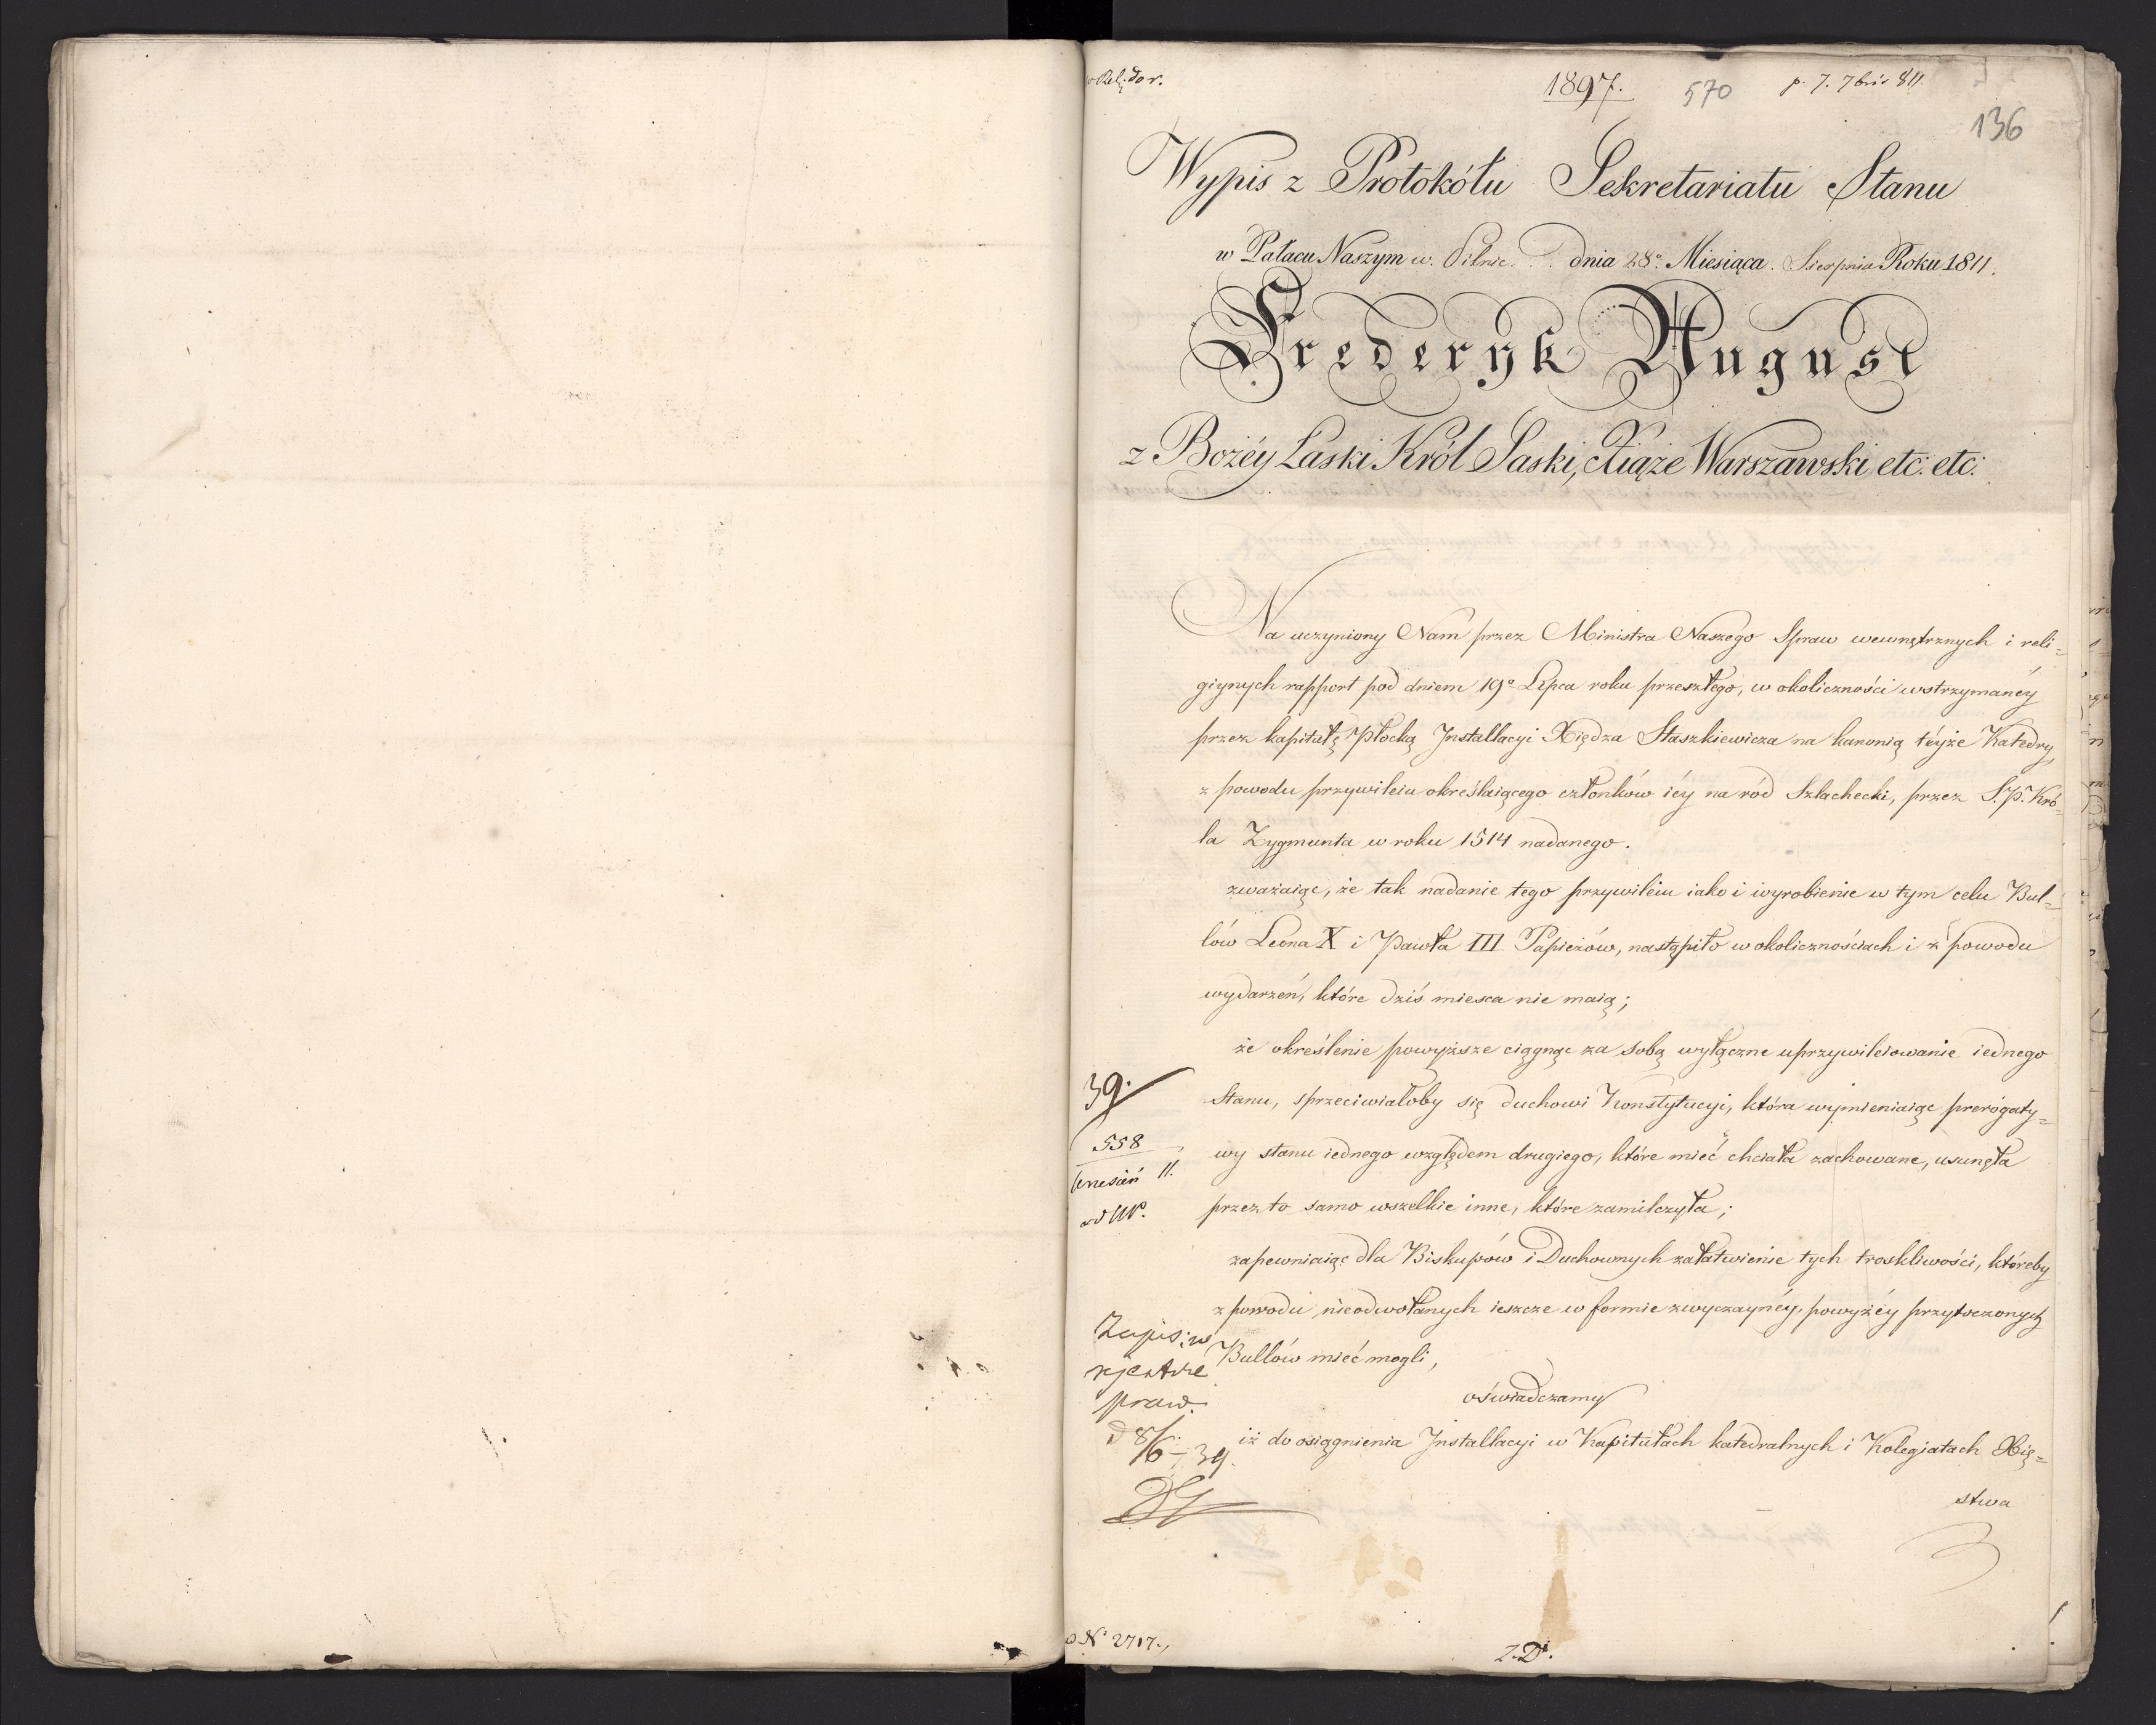 1897. 570 p. 7. 7bris 811.
136
Wypis z Protokółu Sekretariatu Stanu
w Pałacu Naszym w. Pilnic. dnia 28º Miesiąca. Sierpnia Roku 1811.
Frederyk August
z Bożéy Łaski Król Saski, Xiąże Warszawski etc: etc:
Na uczyniony Nam przez Ministra Naszego Spraw wewnętrznych i reli=
giynych rapport pod dniem 19º Lipca roku przeszłego, w okoliczności wstrzymanéy
przez kapitułę Płocką Installacyi Xiędza Staszkiewicza na kanonią téyże Katedry,
z powodu przywileiu określaiącego członków iéy na ród Szlachecki, przez S.P. Kró=
la Zygmunta w roku 1514 nadanego.
zważaiąc, że tak nadanie tego przywileiu iako i wyrobienie w tym celu Bul=
lów Leona X i Pawła III Papieżów, nastąpiło w okolicznościach i z powodu
wydarzeń, które dziś miesca nie maią;
że określenie powyższe ciągnąc za sobą wyłączne uprzywileiowanie iednego
Stanu, sprzeciwiałoby się duchowi Konstytucyi, która wymieniaiąc prerogaty=
wy stanu iednego względem drugiego, które mieć chciała zachowane, usunęła
przez to samo wszelkie inne, które zamilczyła;
zapewniaiąc dla Biskupów i Duchownych załatwienie tych troskliwości, któreby
z powodu nieodwołanych ieszcze w formie zwyczaynéy, powyżéy przytoczonych
Bullów mieć mogli,
oświadczamy
iż do osiągnienia Installacyi w Kapitułach katedralnych i Kolegjatach Xię=
stwa
39.
558
Wrzesień 11.
Zapis: w
rejestrze
praw.
d 8/6 39.
Nº 2717.